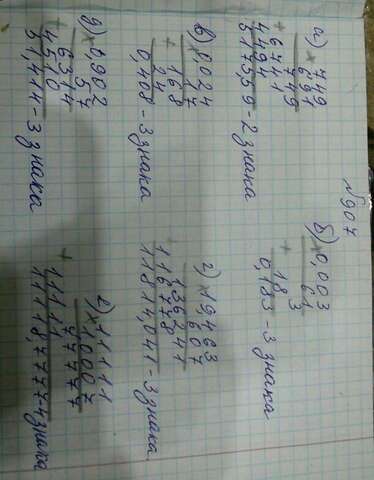 №907
а) × 749
691
+ 749
6741
4494
5175,59 - 2 знака
б) × 0,003
61
+ 3
18
0,183 - 3 знака
в) × 0,024
17
+ 168
24
0,408 - 3 знака
г) × 19463
607
+ 136241
116778
11814,041 - 3 знака
д) × 0,902
57
+ 6314
4510
51,414 - 3 знака
е) × 11111
1,0007
+ 77777
11111
11118,7777 - 4 знака